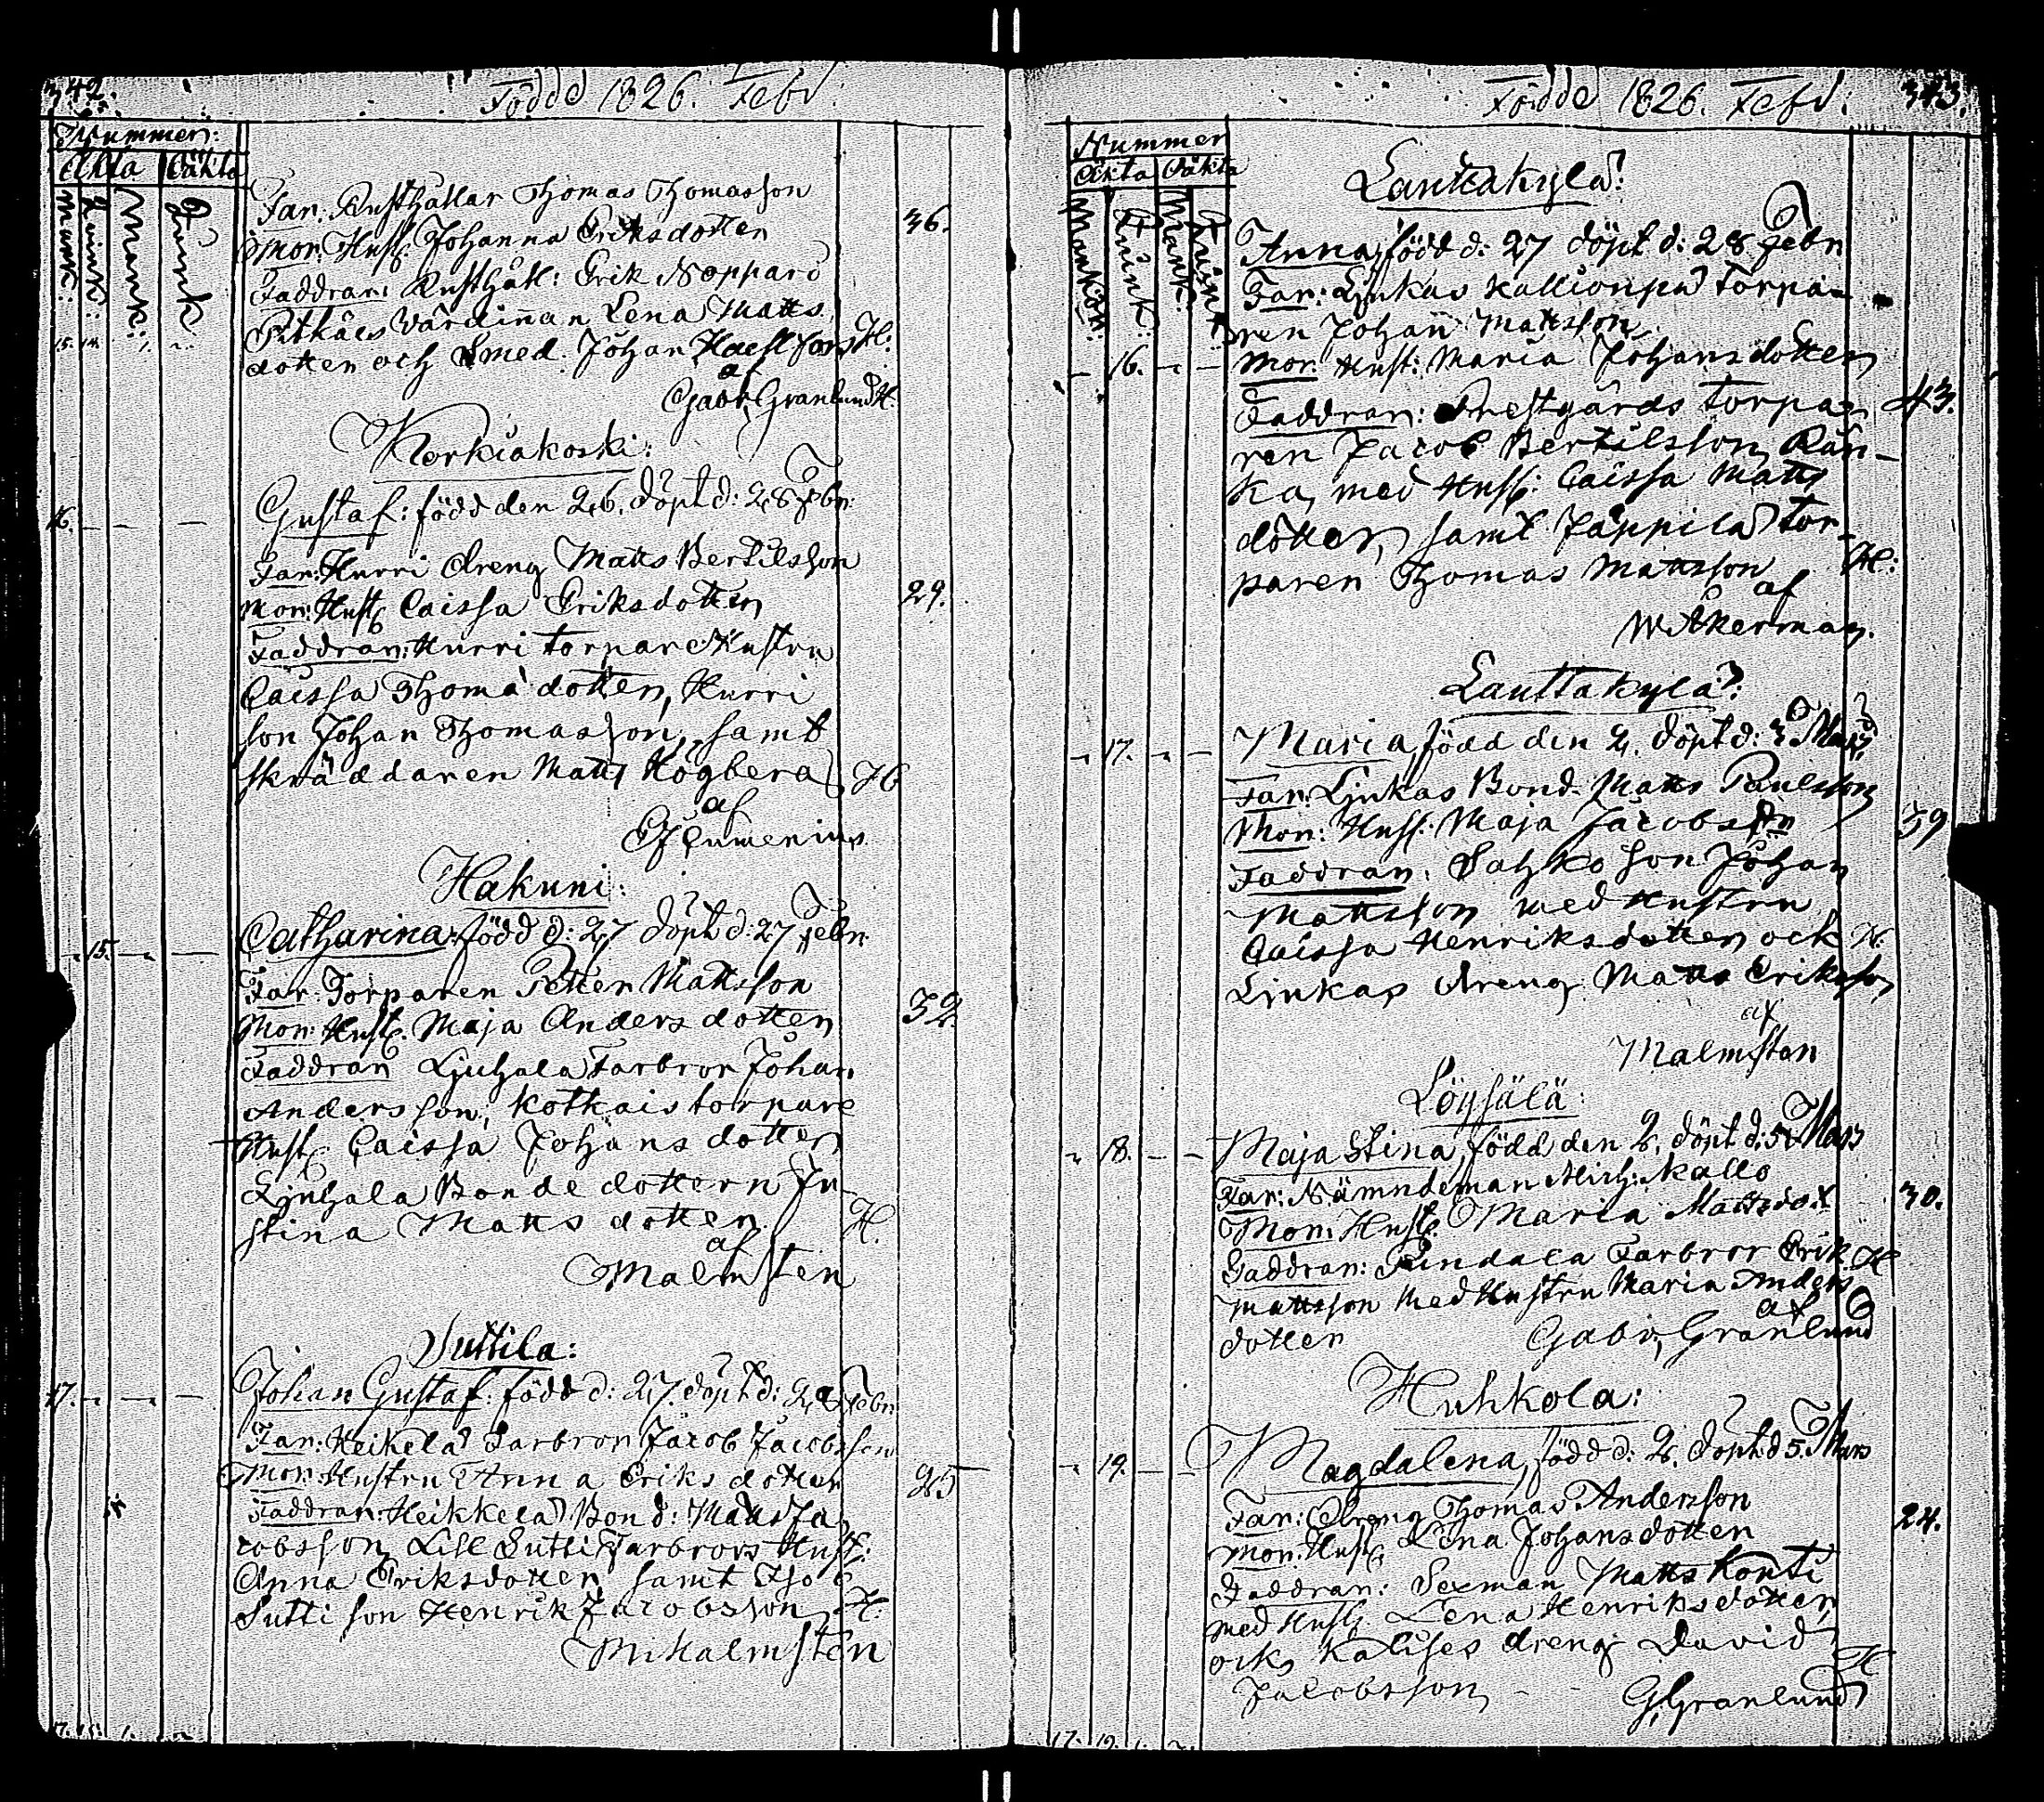 342.
Födde 1826. Febr:
Nummer:
Äkta Oäkta
Mank: Quink: Mank: Quink:
Far: Rusthållar Thomas Thomasson
Mor: Hust: Johanna Eriksdotter
36.
Faddrar: Rusthåll: Erik Noppari
Pitkäis Värdinnan Lena Matts
dotter och Smed. Johan H:
15. 14. 1. "
af
Gabr. Granlund
Korkiakoski:
Gustaf: född den 26. döpt d: 28 Febr:
16. – – –
Far: Hurri dreng Matts Bertilsson
Mor: Hust: Caissa Eriksdotter
29.
Faddrar: Hurri torpare Hustru
Caissa Thoma dotter, Hurri
son Johan Thomasson, samt
skräddaren Matts Högberg H
af
Hakuni:
Catharina: född d: 27 döpt d: 27 Febr:
15. – –
Far: Torparen Petter Mattsson
Mor: Hust: Maja Andersdotter
32.
Faddrar Ljuhala Farbror Johan
Andersson, Kotkais torpare
Hust: Caissa Johans dotter
Ljuhala Bonde dottern Ju-
stina Matts dotter. H.
af
Malmsten
Suttila:
Johan Gustaf: född d: 27. döpt d: 28 Febr:
17. – – –
Far: Heikelä Farbror Jacob Jacobsson
Mor: Hustru Anna Eriks dotter
25
Faddrar: Heikkelä Bond: Matts Ja
cobsson, Lill Sutti Farbrors Hust:
Anna Eriksdotter, samt Iso
Sutti son Henrik Jacobsson H:
Malmsten
17. 15. 1. "
Födde 1826. Febr: 343.
Nummer
Äkta Oäkta
Mankön: Quink: Mank: Quink:
Lauttakylä:
Anna, född d: 27 döpt d: 28 Febr:
Far: Ljukas Kallionpä Torpa-
ren Johan Mattsson
– 16. – –
Mor: Hust: Maria Johansdotter
43.
Faddrar: Prestgårds torpa-
ren Jacob Bertilsson Rän-
kä, med Hust: Caissa Matts
dotter, samt Jäppilä tor-
paren Thomas Mattsson H:
af
W Åkerman.
Lauttakylä:
Maria, född den 2. döpt d: 3 Mars
– 17. – –
Far: Ljukas Bond. Matts Paulsson
Mor: Hust: Maja Jacobs dr
39
Faddrar: Sahko Son Johan
Mattsson med Hustru
Caissa Henriksdotter och H:
Ljukas dreng Matts Eriksson
af
Malmsten
Löysälä:
Maja Stina, född den 2. döpt d: 5 Mars
– 18. – –
Far: Nämndeman Mich: Kallo
Mor: Hust: Maria Mattsdot
30.
Faddrar: Pundala Farbror Erik H
Mattsson med Hustru Maria Anders
dotter af
Gabr. Granlund
Huhkola:
Magdalena, född d: 2. döpt d 5. Mars
– 19. – –
Far: Dreng Thomas Andersson
24.
Mor: Hust: Lena Johansdotter
Faddrar: Sexman Matts Konti
med Hust: Lena Henriksdotter
och Kalises dreng David H
Jacobsson
G. Granlund
17. 19. 1. "